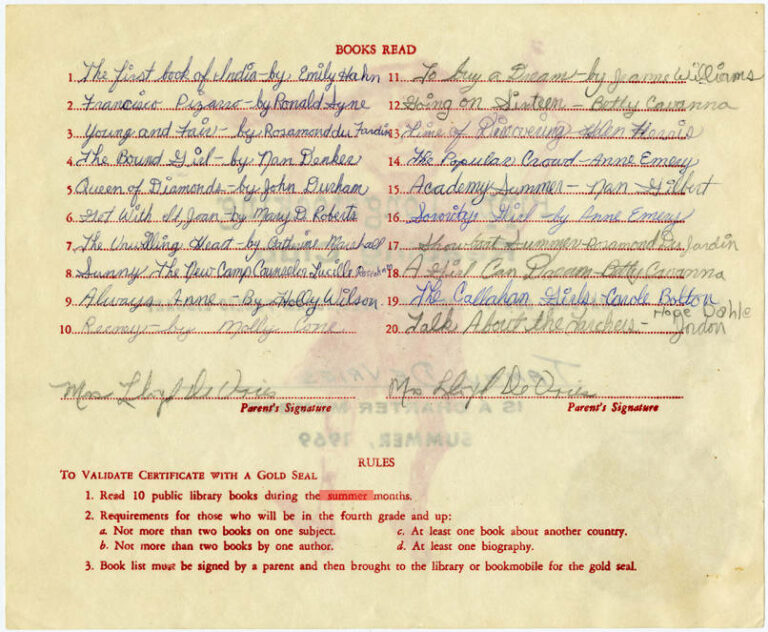 BOOKS READ
1. The first book of India-by Emily Hahn
2. Francisco Pizarro-by Ronald Syne
3. Young and Fair - by Rosamond du Jardin
4. The Bound Girl-by Nan Denker
5. Queen of Diamonds-by John Durham
6. Got With It, Joan-by Mary D. Roberts
7. The Unwilling Heart-by Catherine Marshall
8. Sunny The New Camp Counselor Lucille
9. Always Anne-By Holly Wilson
10. Reeney-by Molly Cone
11. To buy a Dream-by Jeanne Williams
12. Going on Sixteen - Betty Cavanna
13. Time of Discovering Helen
14. The Popular Crowd-Anne Emery
15. Academy Summer - Nan Gilbert
16. Sorority Girl-by Anne Emery
17. Showboat Summer-Rosamond Du Jardin
18. A Girl Can Dream-Betty Cavanna
19. The Callahan Girls-Carole Bolton
20. Talk About the Tarchers- Hope Dahle
Jordon
Mrs Lloyd De Vries
Parent's Signature
Mrs Lloyd De Vries
Parent's Signature
Terri De Vries
IS A CHARTER
SUMMER, 1969
RULES
TO VALIDATE CERTIFICATE WITH A GOLD SEAL
1. Read 10 public library books during the summer months.
2. Requirements for those who will be in the fourth grade and up:
a. Not more than two books on one subject.
b. Not more than two books by one author.
c. At least one book about another country.
d. At least one biography.
3. Book list must be signed by a parent and then brought to the library or bookmobile for the gold seal.